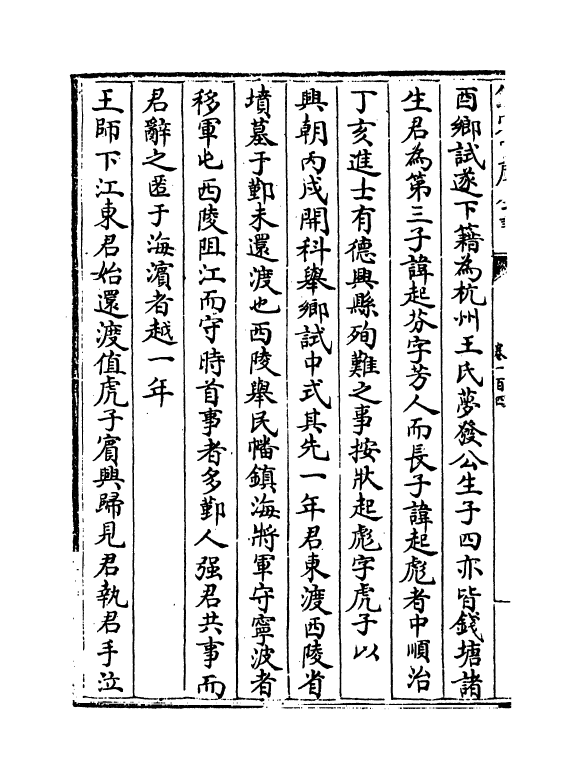 酉鄉試遂下籍為杭州王氏夢發公生子四亦皆錢塘諸
生君為第三子諱起芬字芳人而長子諱起彪者中順治
丁亥進士有德興縣殉難之事按狀起彪字虎子以
興朝丙戌開科舉鄉試中式其先一年君東渡西陵省
墳墓于鄞未還渡也西陵舉民幡鎮海將軍守寧波者
移軍屯西陵阻江而守時首事者多鄞人强君共事而
君辭之匿于海濵者越一年
王師下江東君始還渡值虎子賓興歸見君執君手泣
卷一百四